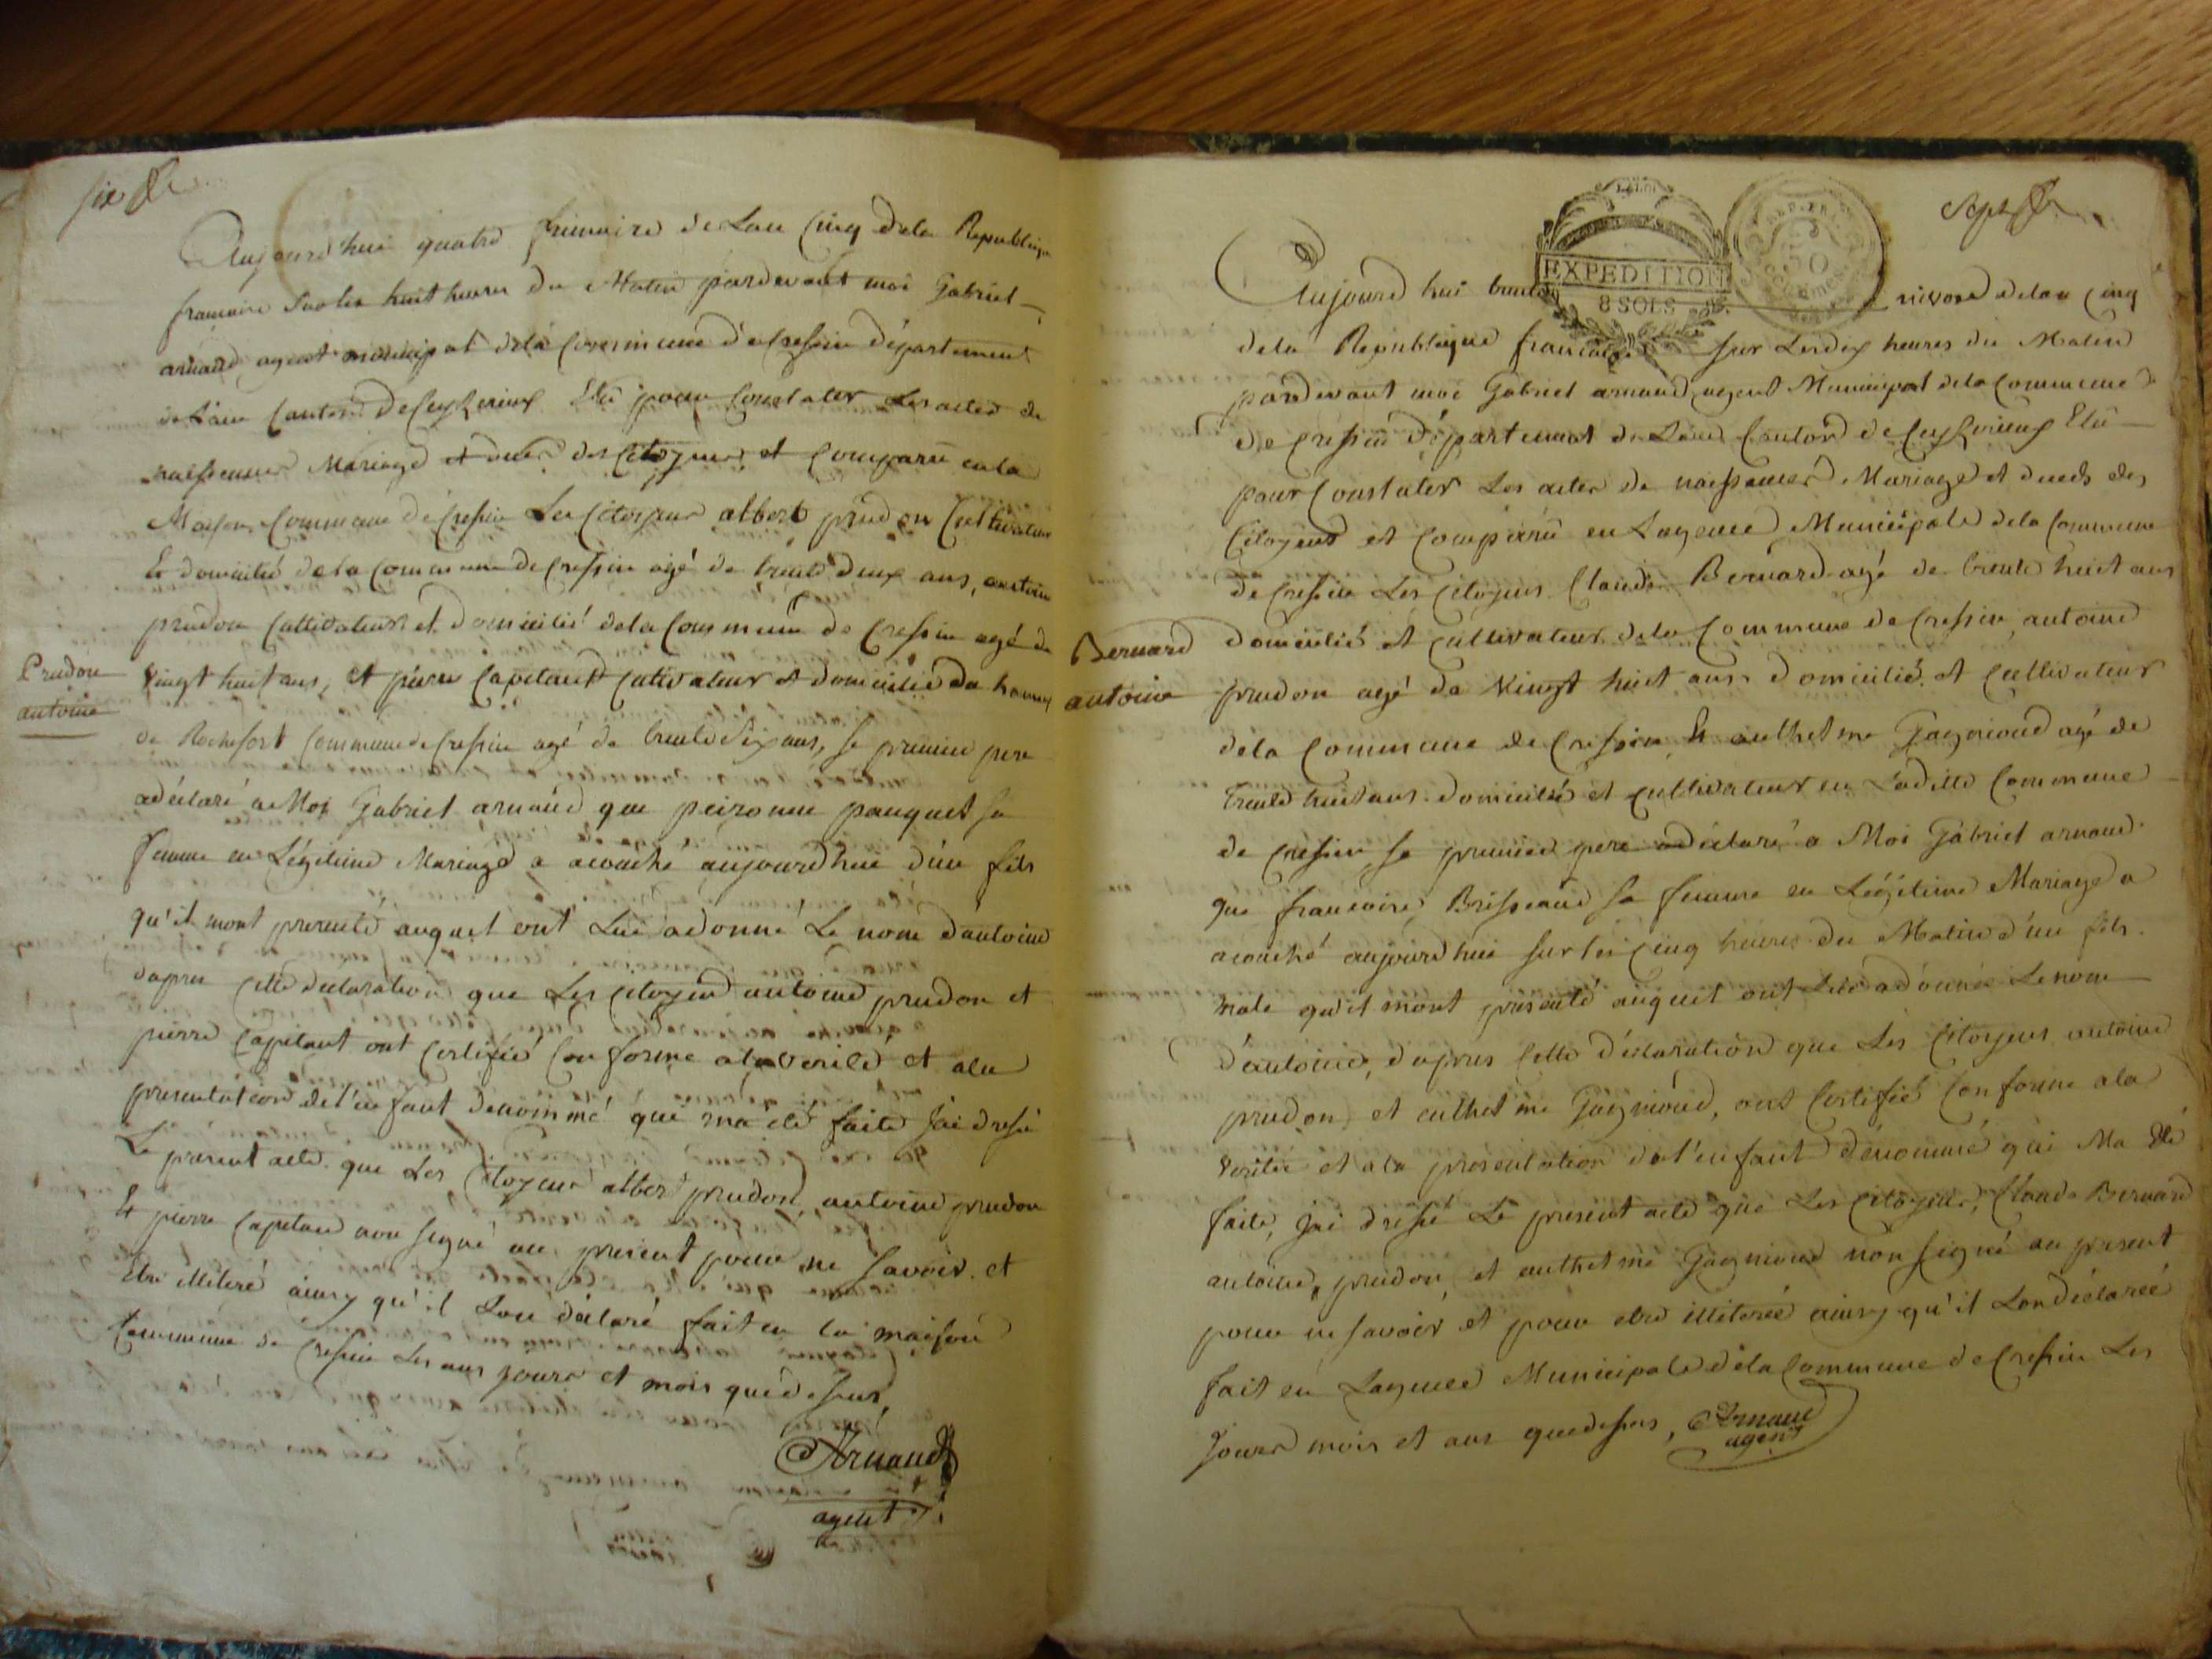 six
Aujourd'hui quatre frimaire de Lan Cinq dela Republique
francaise sur les huit heures du Matin pardevant moi Gabriel
arnaud agent municipal dela Commune de Cressin département
de Lain Canton de Ceyzerieux Elu pour Constater Les actes de
naissances Mariage et deces des Citoyens, et Comparu en la
Maison Commune de Cressin Les Citoyens albert prudon Cultivateur
Et domicilié dela Commune de Cressin agé de trente deux ans, antoine
prudon Cultivateur et domicilié dela Commune de Cressin agé de
Prudon
antoine
vingt huit ans, et pierre Capitant Cultivateur et domicilié du hameau
de Rochefort Commune de Cressin agé de trente six ans, le premier pere
a déclaré a Moi Gabriel arnaud que peironne pauquet sa
femme en Légitime Mariage a acouché aujourdhui d'un fils
qu'il mont presenté auquel ont Lui adonné Le nom d'antoine
dapres cette declaration que Les Citoyens antoine prudon et
pierre Capitant ont Certifié Conforme ala verité et ala
presentation de l'enfant denommé qui ma été faite jai dressé
Le present acte que Les Citoyens albert prudon, antoine prudon
Et pierre Capitant non signé au present pour ne savoir et
Etre illiteré ainsy qu'il Lon déclaré fait en la maison
Commune de Cressin Les ans jours et mois que dessus,
Arnaud
agent
Sept
EXPEDITION
8 SOLS
Aujourd hui trente nivose delan Cinq
dela Republique francaise sur Les dix heures du Matin
pardevant moi Gabriel arnaud agent Municipal dela Commune
de Cressin Département de Lain Canton de Ceyzerieux Elu
pour Constater Les actes de naissances Mariage et deces des
Citoyens et Comparu en Lagence Municipale dela Commune
de Cressin Les Citoyens Claude Bernard agé de trente huit ans
Bernard
antoine
domicilié et Cultivateur dela Commune de Cressin, antoine
prudon agé de Vingt huit ans domicilié et Cultivateur
dela Commune de Cressin Et anthelme Gagnioud agé de
trente huit ans domicilié et Cultivateur en Laditte Commune
de Cressin, le premier pere a déclaré a Moi Gabriel arnaud
que francoise Brisseaud sa femme en Légitime Mariage a
acouché aujourdhui sur les Cinq heures du Matin d'un fils
male qu'il mont presenté auquel ont Lui adonné Le nom
d'antoine, dapres Cette déclaration que Les Citoyens antoine
prudon, et anthelme Gagnioud, ont Certifié Conforme ala
Verité et ala presentation de l'enfant dénommé qui Ma été
faite, jai dressé Le present acte que Les Citoyens, Claude Bernard
antoine, prudon, et anthelme Gagnioud non signé au present
pour ne savoir et pour etre illiteré ainsy qu'il Lon déclaréé
fait en Lagence Municipale dela Commune de Cressin Les
Jours mois et ans que dessus, Arnaud
agent